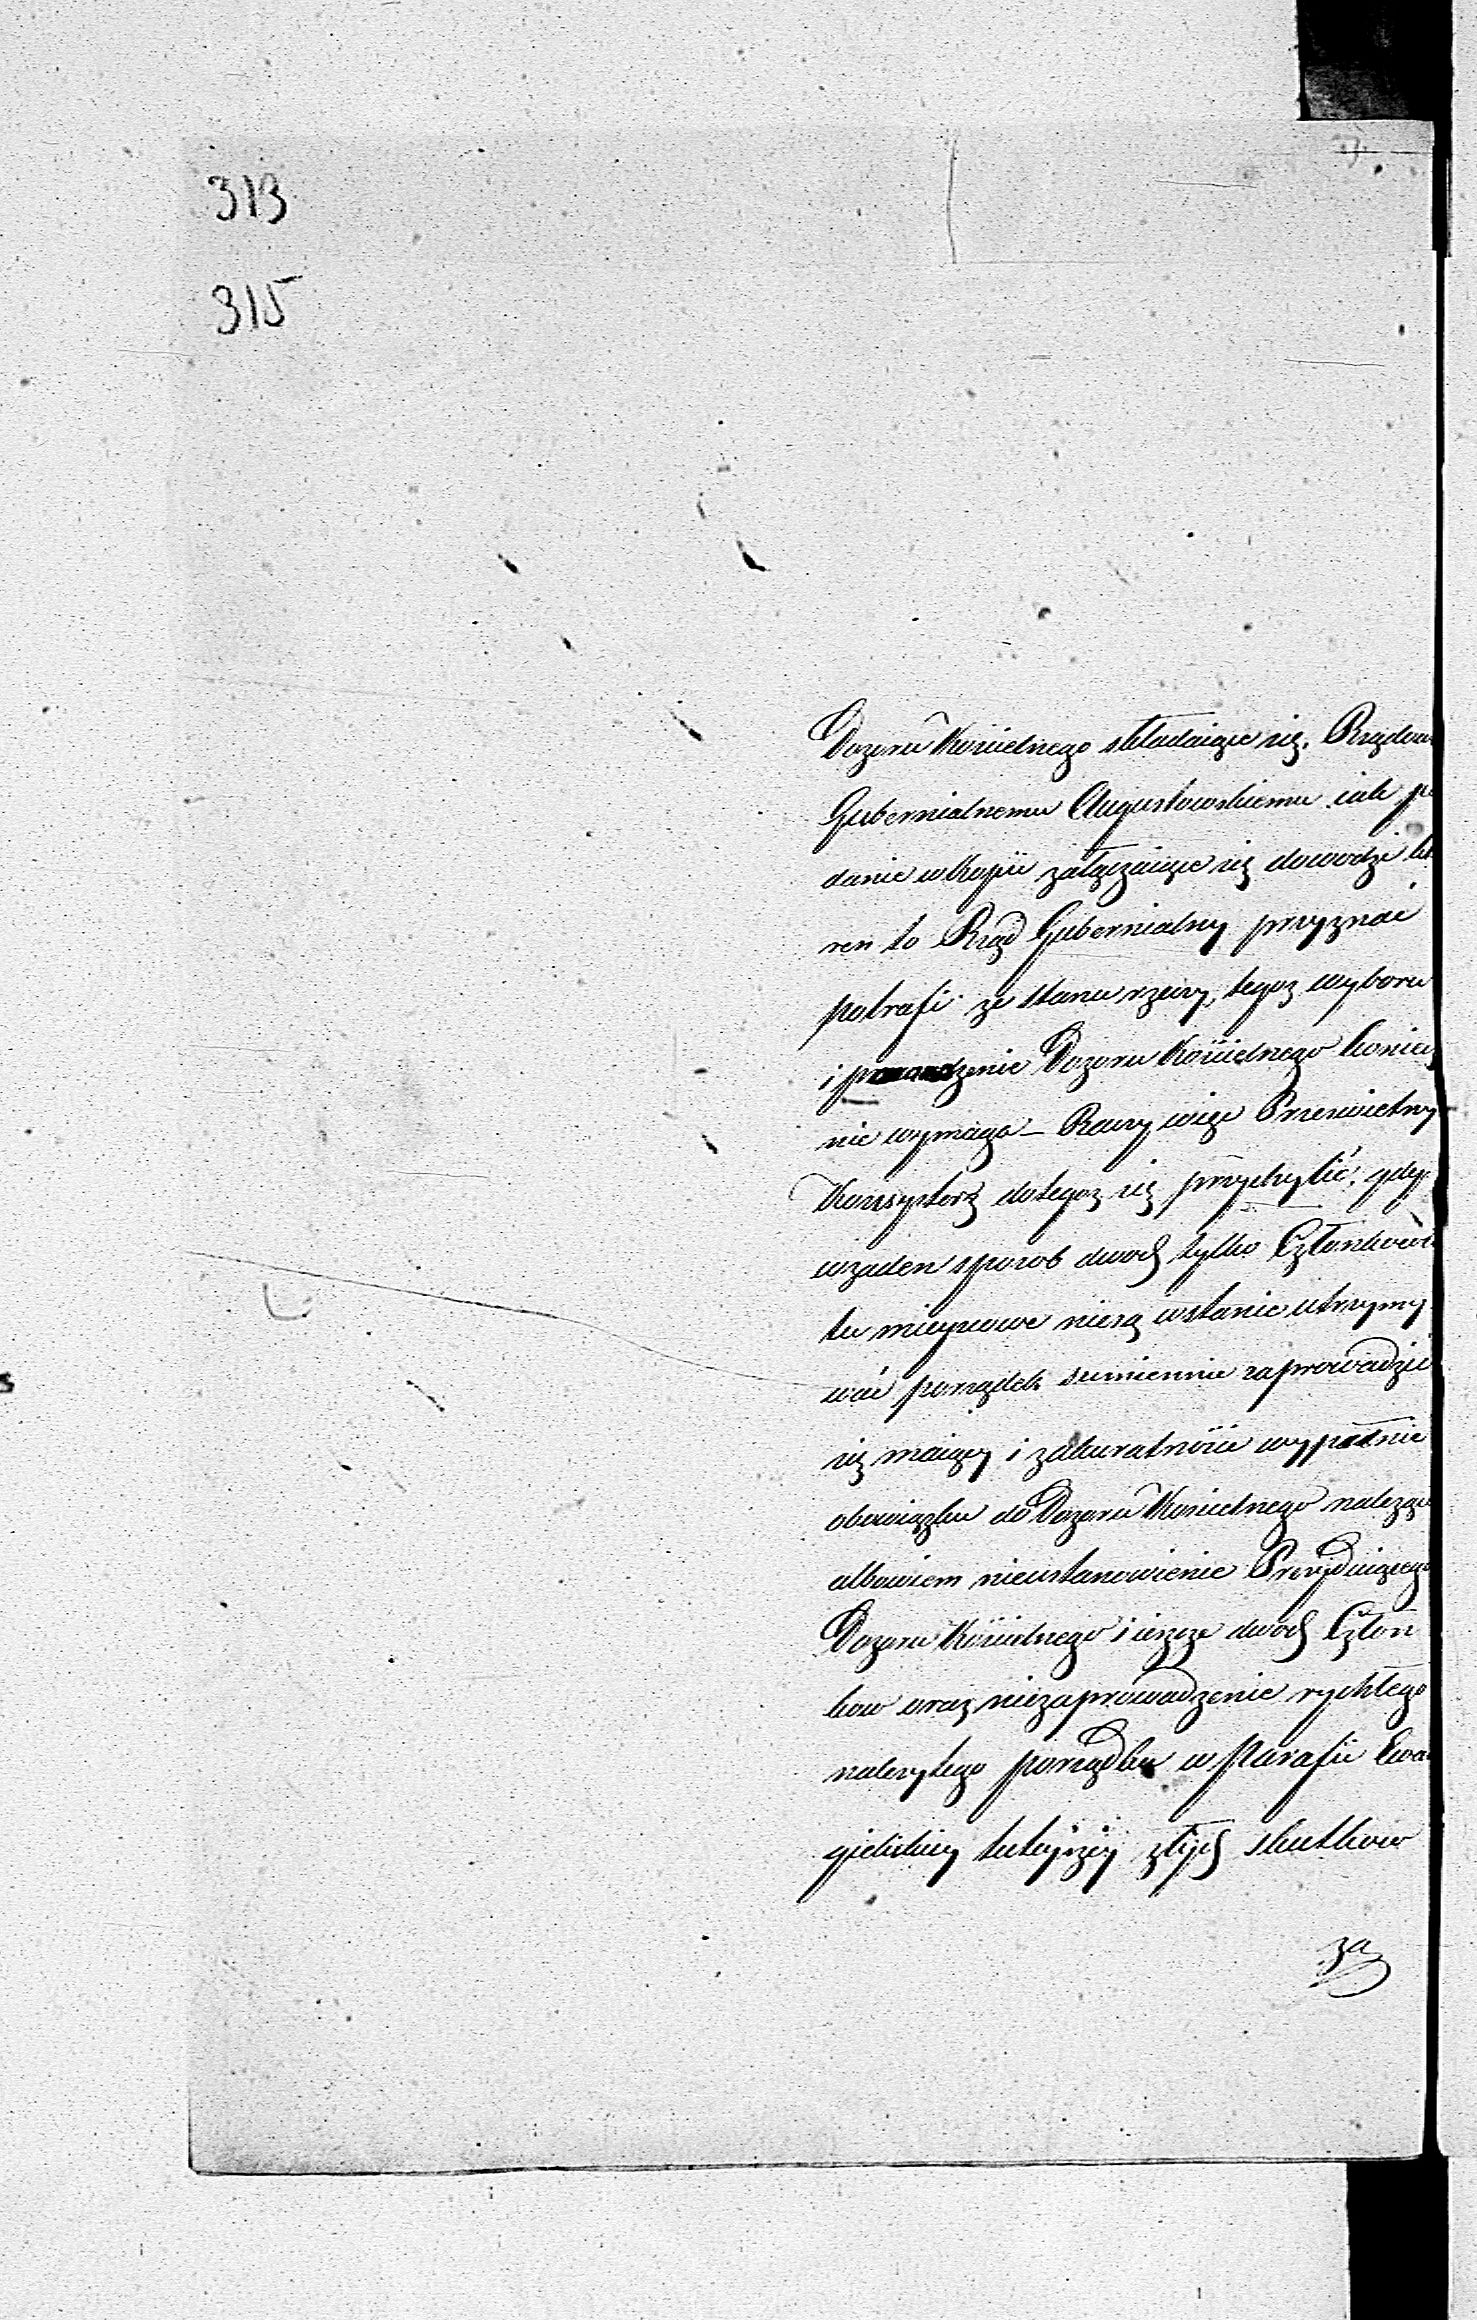 313
315
Dozoru Kościelnego składaiące się. Rządow
Gubernialnemu Augustowskiemu iak po
danie w kopii załączaiące się dowodzi kt
ren to Rząd Gubernialny przyznać
potrafi ze stanu rzeczy, tegoz wyboru
i prowadzenie Dozoru Kościelnego koniecz
nie wymaga – Raczy więc Prześwietny
Konsystorz do tegoz się przychylić, gdyz
wzaden sposob dwoch tylko Członkowie
tu mieyscowe niesą wstanie utrzymy
wać porządek sumiennie zaprowadzić
się maiący i zakuratnością wypełnić
obowiązku do Dozoru Kościelnego nalezące
albowiem nieustanowienie Prezyduiącego
Dozoru Kościelnego i ieszcze dwoch Człon
kow oraz niezaprowadzenie rychłego
nalezytego porządku w Parafii Ewan
gielickiey tuteyszey złych skutkow
za